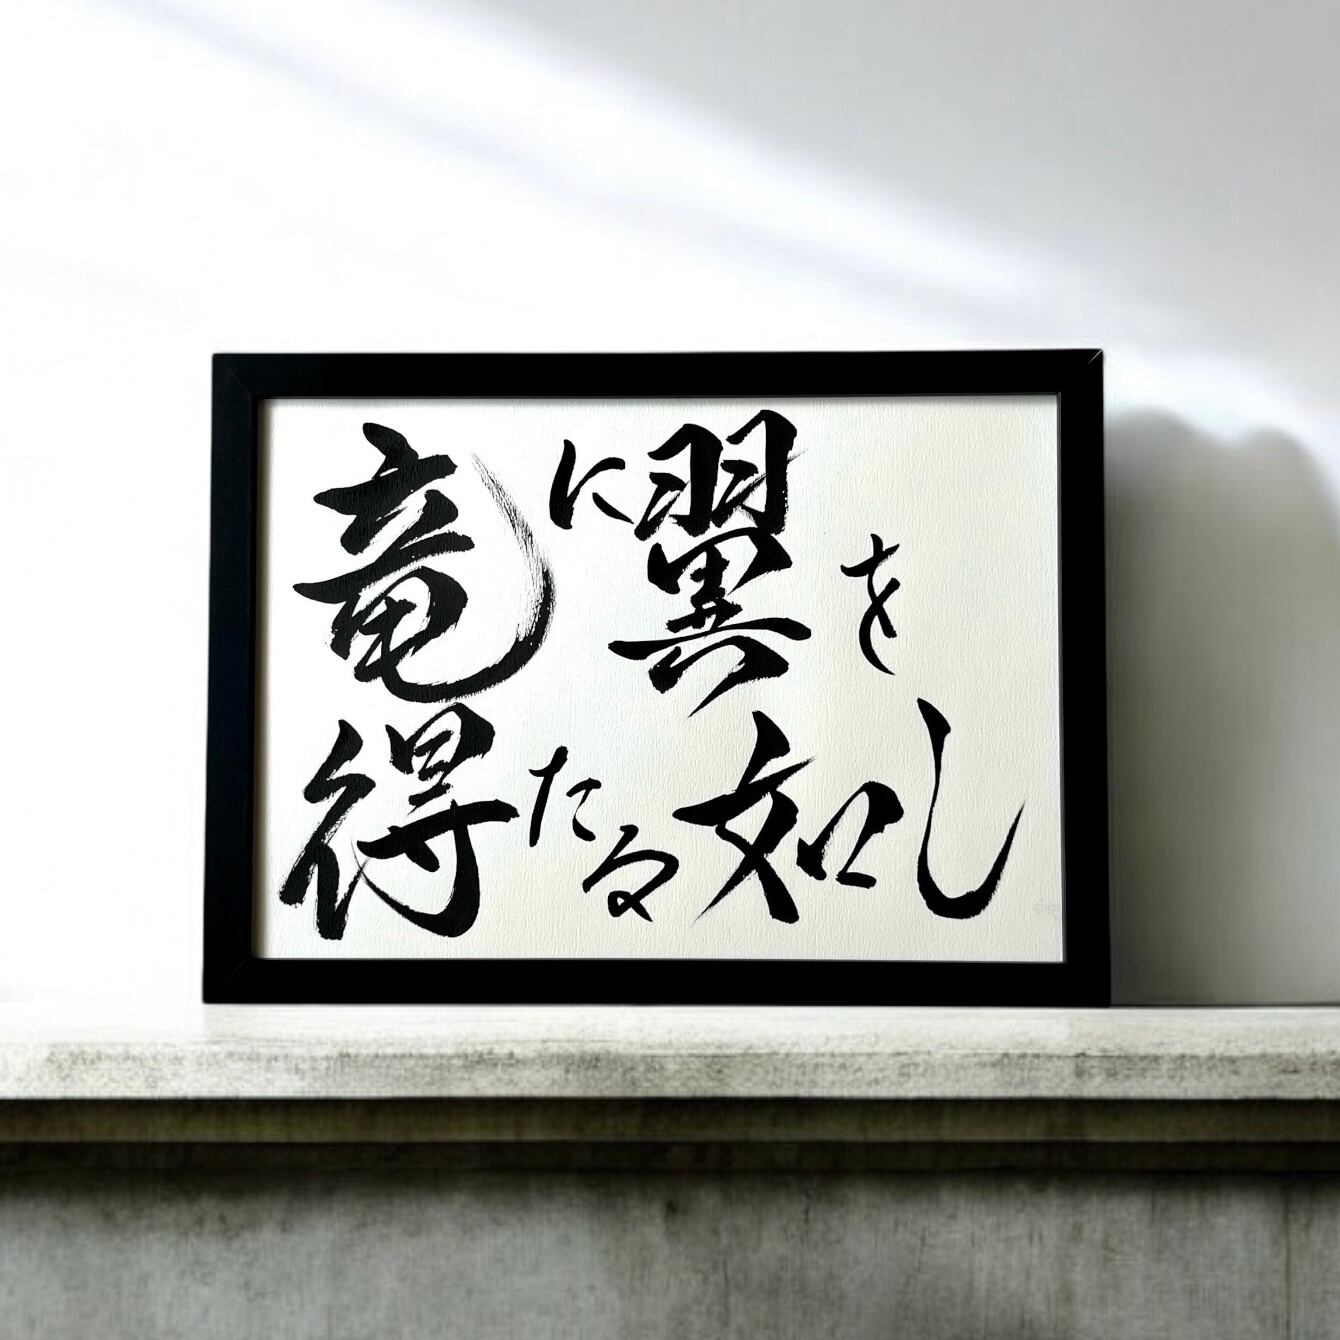 竜に翼を
得たる如し